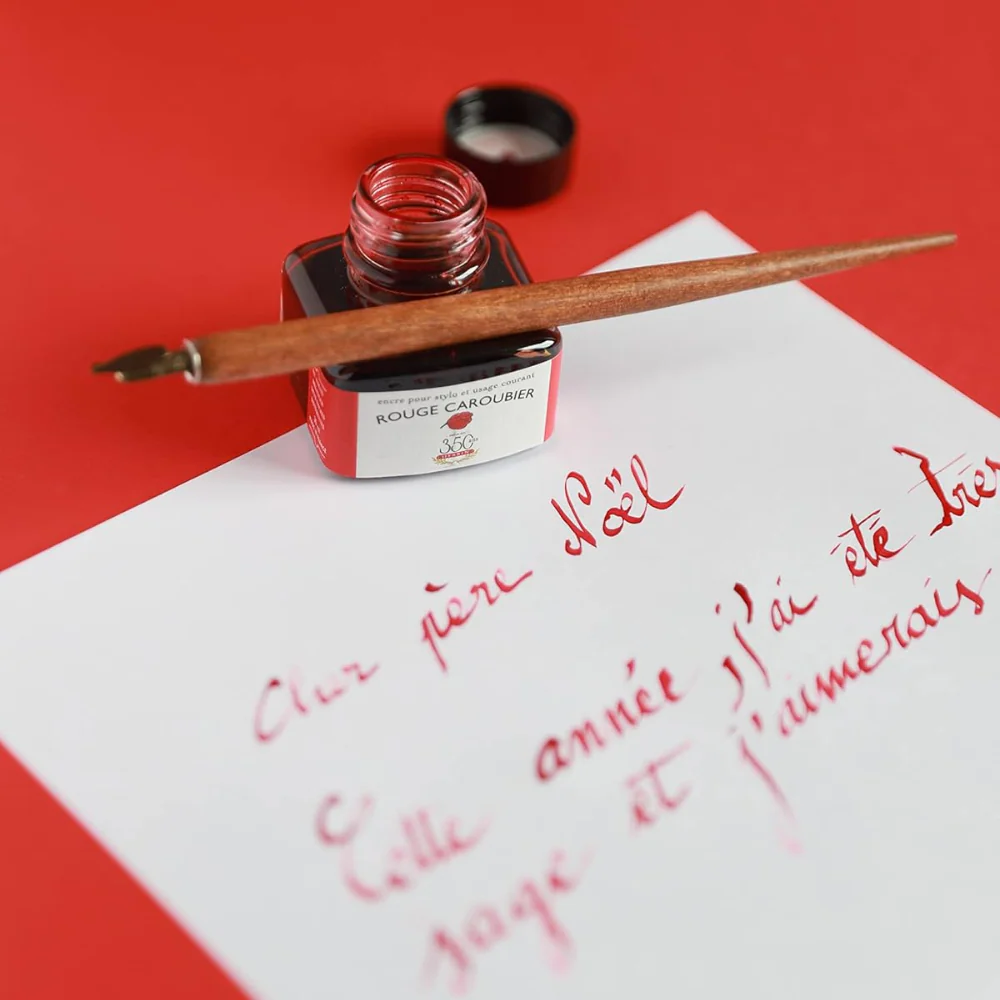 encre pour stylo et usage courant
ROUGE CAROUBIER
350
HERBIN
Cher père Noël
Cette année j'ai été très
sage et j'aimerais